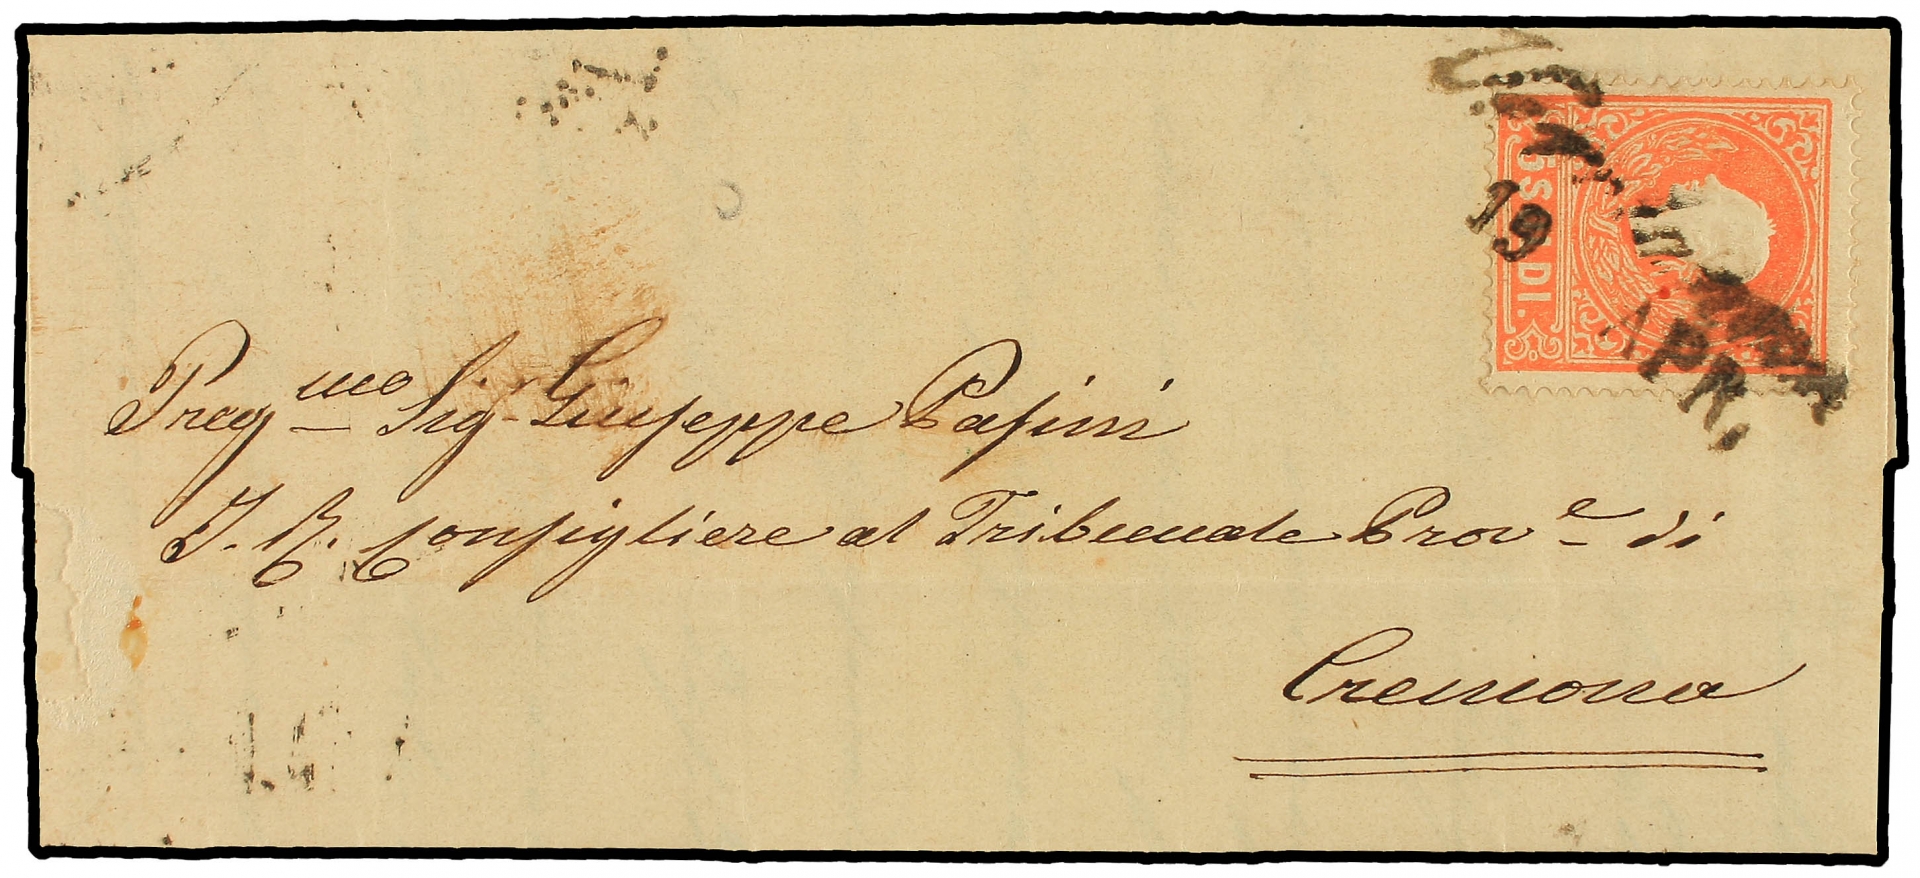 19
APR.
5 SOLDI.
Preg.mo Sig. Giuseppe Pasini
I. R. Consigliere al Tribunale Prov.e di
Cremona